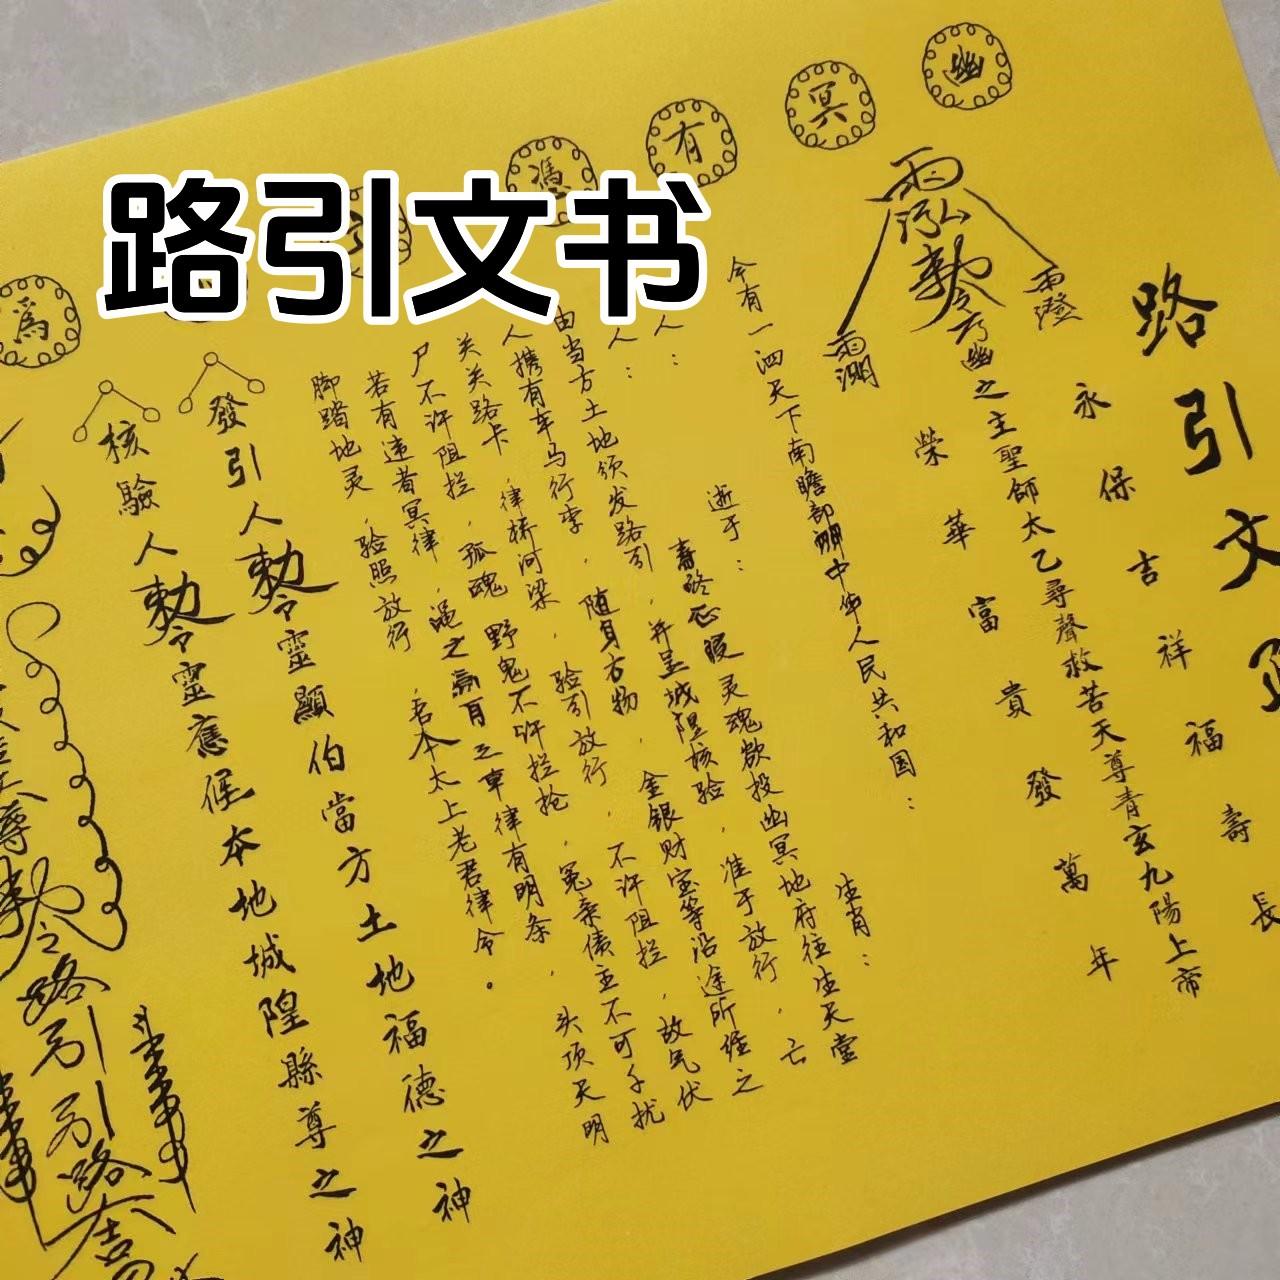 路引文书
幽冥有憑
為
路引文
永保吉祥福壽長
雨澄
敕令玄幽之主聖師太乙尋聲救苦天尊青玄九陽上帝
雨淵
榮華富貴發萬年
今有一泗天下南瞻部洲中华人民共和国：
逝于：
生肖：
人：
寿终正寝灵魂欲投幽冥地府往生天堂
人：
由当方土地须发路引，并呈城隍核验，准于放行，亡
人携有车马行李，随身衣物，金银财宝等沿途所经之
关关路卡，律桥河梁，验引放行，不许阻拦，故气伏
尸不许阻拦，孤魂野鬼不许拦抢，冤亲债主不可干扰
若有违者冥律，渑之
之事律有明条，头顶天明
脚踏地灵，验照放行，吾本太上老君律令。
發引人敕令靈顯伯當方土地福德之神
核驗人敕令靈應候本地城隍縣尊之神
之路引引路